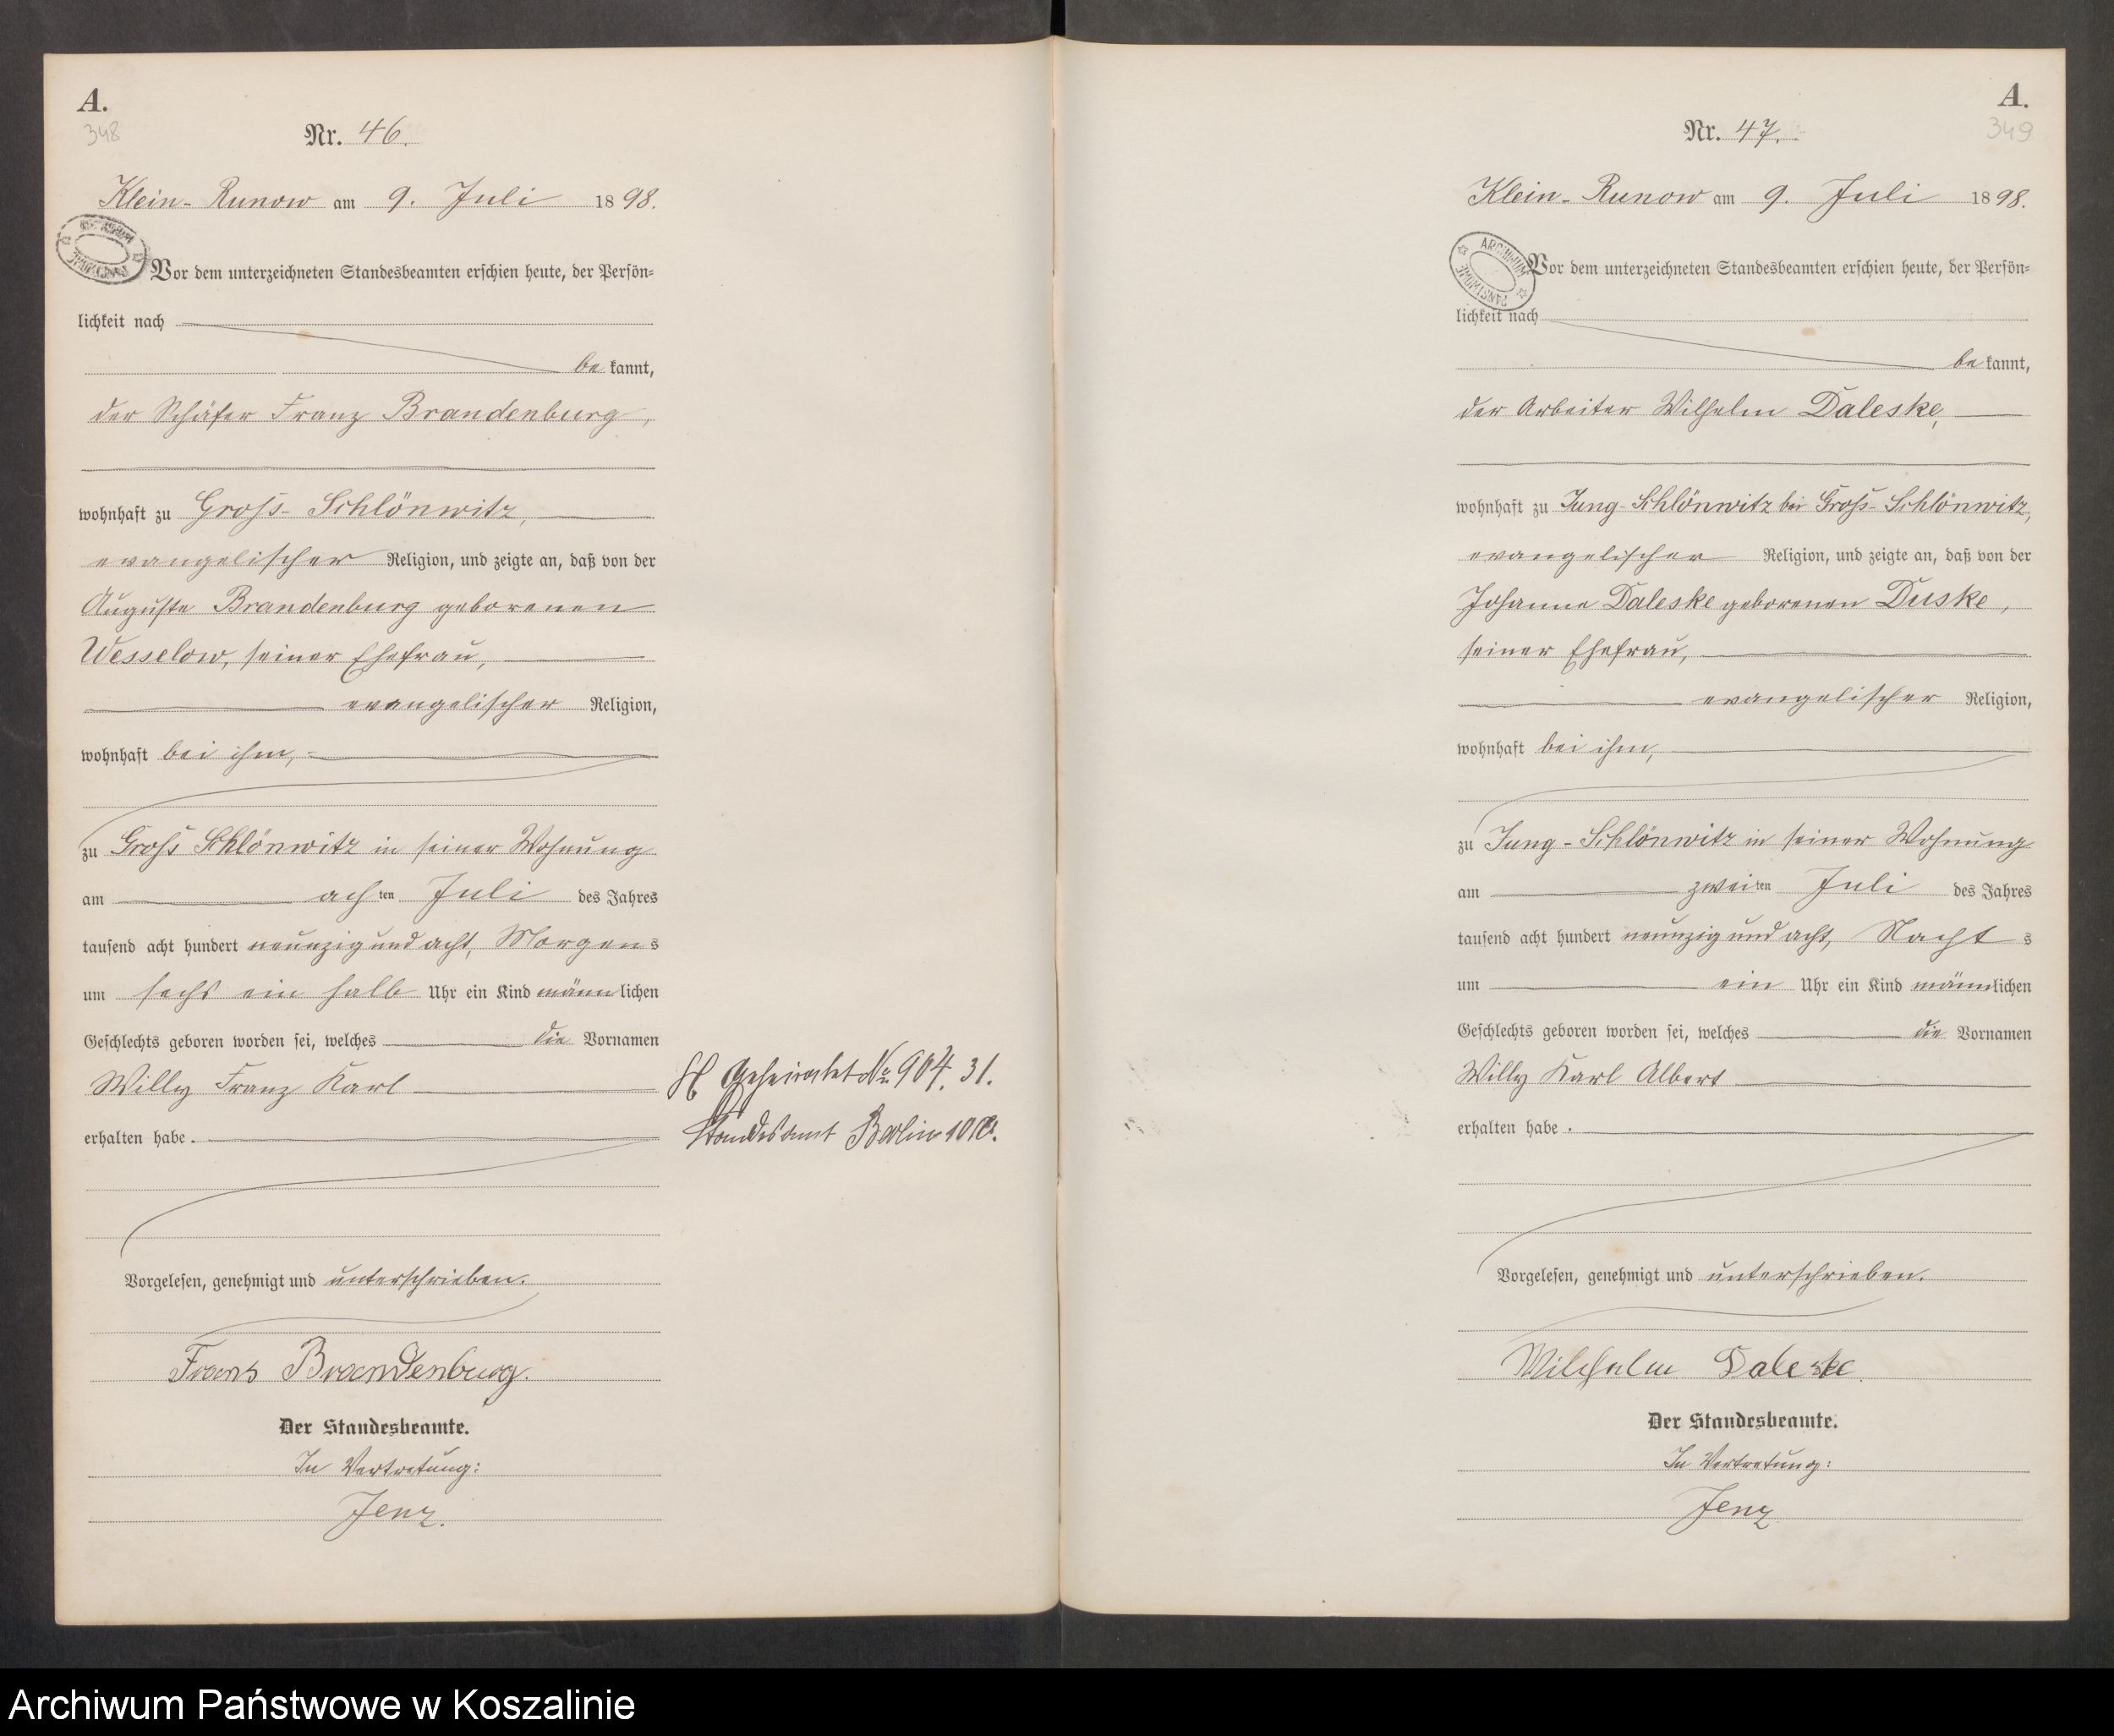 A.
348
Nr. 46.
Klein-Runow am 9. Juli 1898.
Vor dem unterzeichneten Standesbeamten erschien heute, der Persön=
lichkeit nach
be kannt,
der Schäfer Franz Brandenburg,
wohnhaft zu Groß-Schlönwitz,
evangelischer Religion, und zeigte an, daß von der
Auguste Brandenburg geborenen
Wesselow, seiner Ehefrau,
evangelischer Religion,
wohnhaft bei ihm,
zu Groß Schlönwitz in seiner Wohnung
am achten Juli des Jahres
tausend acht hundert neunzig und acht, Morgens
um sechs ein halb Uhr ein Kind männlichen
Geschlechts geboren worden sei, welches die Vornamen
Willy Franz Karl
erhalten habe.
Geheiratet No 904. 31.
Standesamt Berlin
Vorgelesen, genehmigt und unterschrieben.
Franz Brandenburg.
Der Standesbeamte.
In Vertretung:
Jenz.
A.
349
Nr. 47.
Klein-Runow am 9. Juli 1898.
ARCHIWUM PAŃSTWOWE
Vor dem unterzeichneten Standesbeamten erschien heute, der Persön=
lichkeit nach
be kannt,
der Arbeiter Wilhelm Daleske,
wohnhaft zu Jung-Schlönwitz bei Groß-Schlönwitz,
evangelischer Religion, und zeigte an, daß von der
Johanne Daleske geborenen Duske,
seiner Ehefrau,
evangelischer Religion,
wohnhaft bei ihm,
zu Jung-Schlönwitz in seiner Wohnung
am zweiten Juli des Jahres
tausend acht hundert neunzig und acht, Nachts
um ein Uhr ein Kind männlichen
Geschlechts geboren worden sei, welches die Vornamen
Willy Karl Albert
erhalten habe.
Vorgelesen, genehmigt und unterschrieben.
Wilhelm Daleske
Der Standesbeamte.
In Vertretung:
Jenz
Archiwum Państwowe w Koszalinie